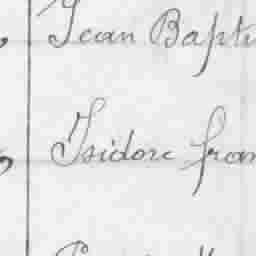 Jean Bapti
Isidore fran